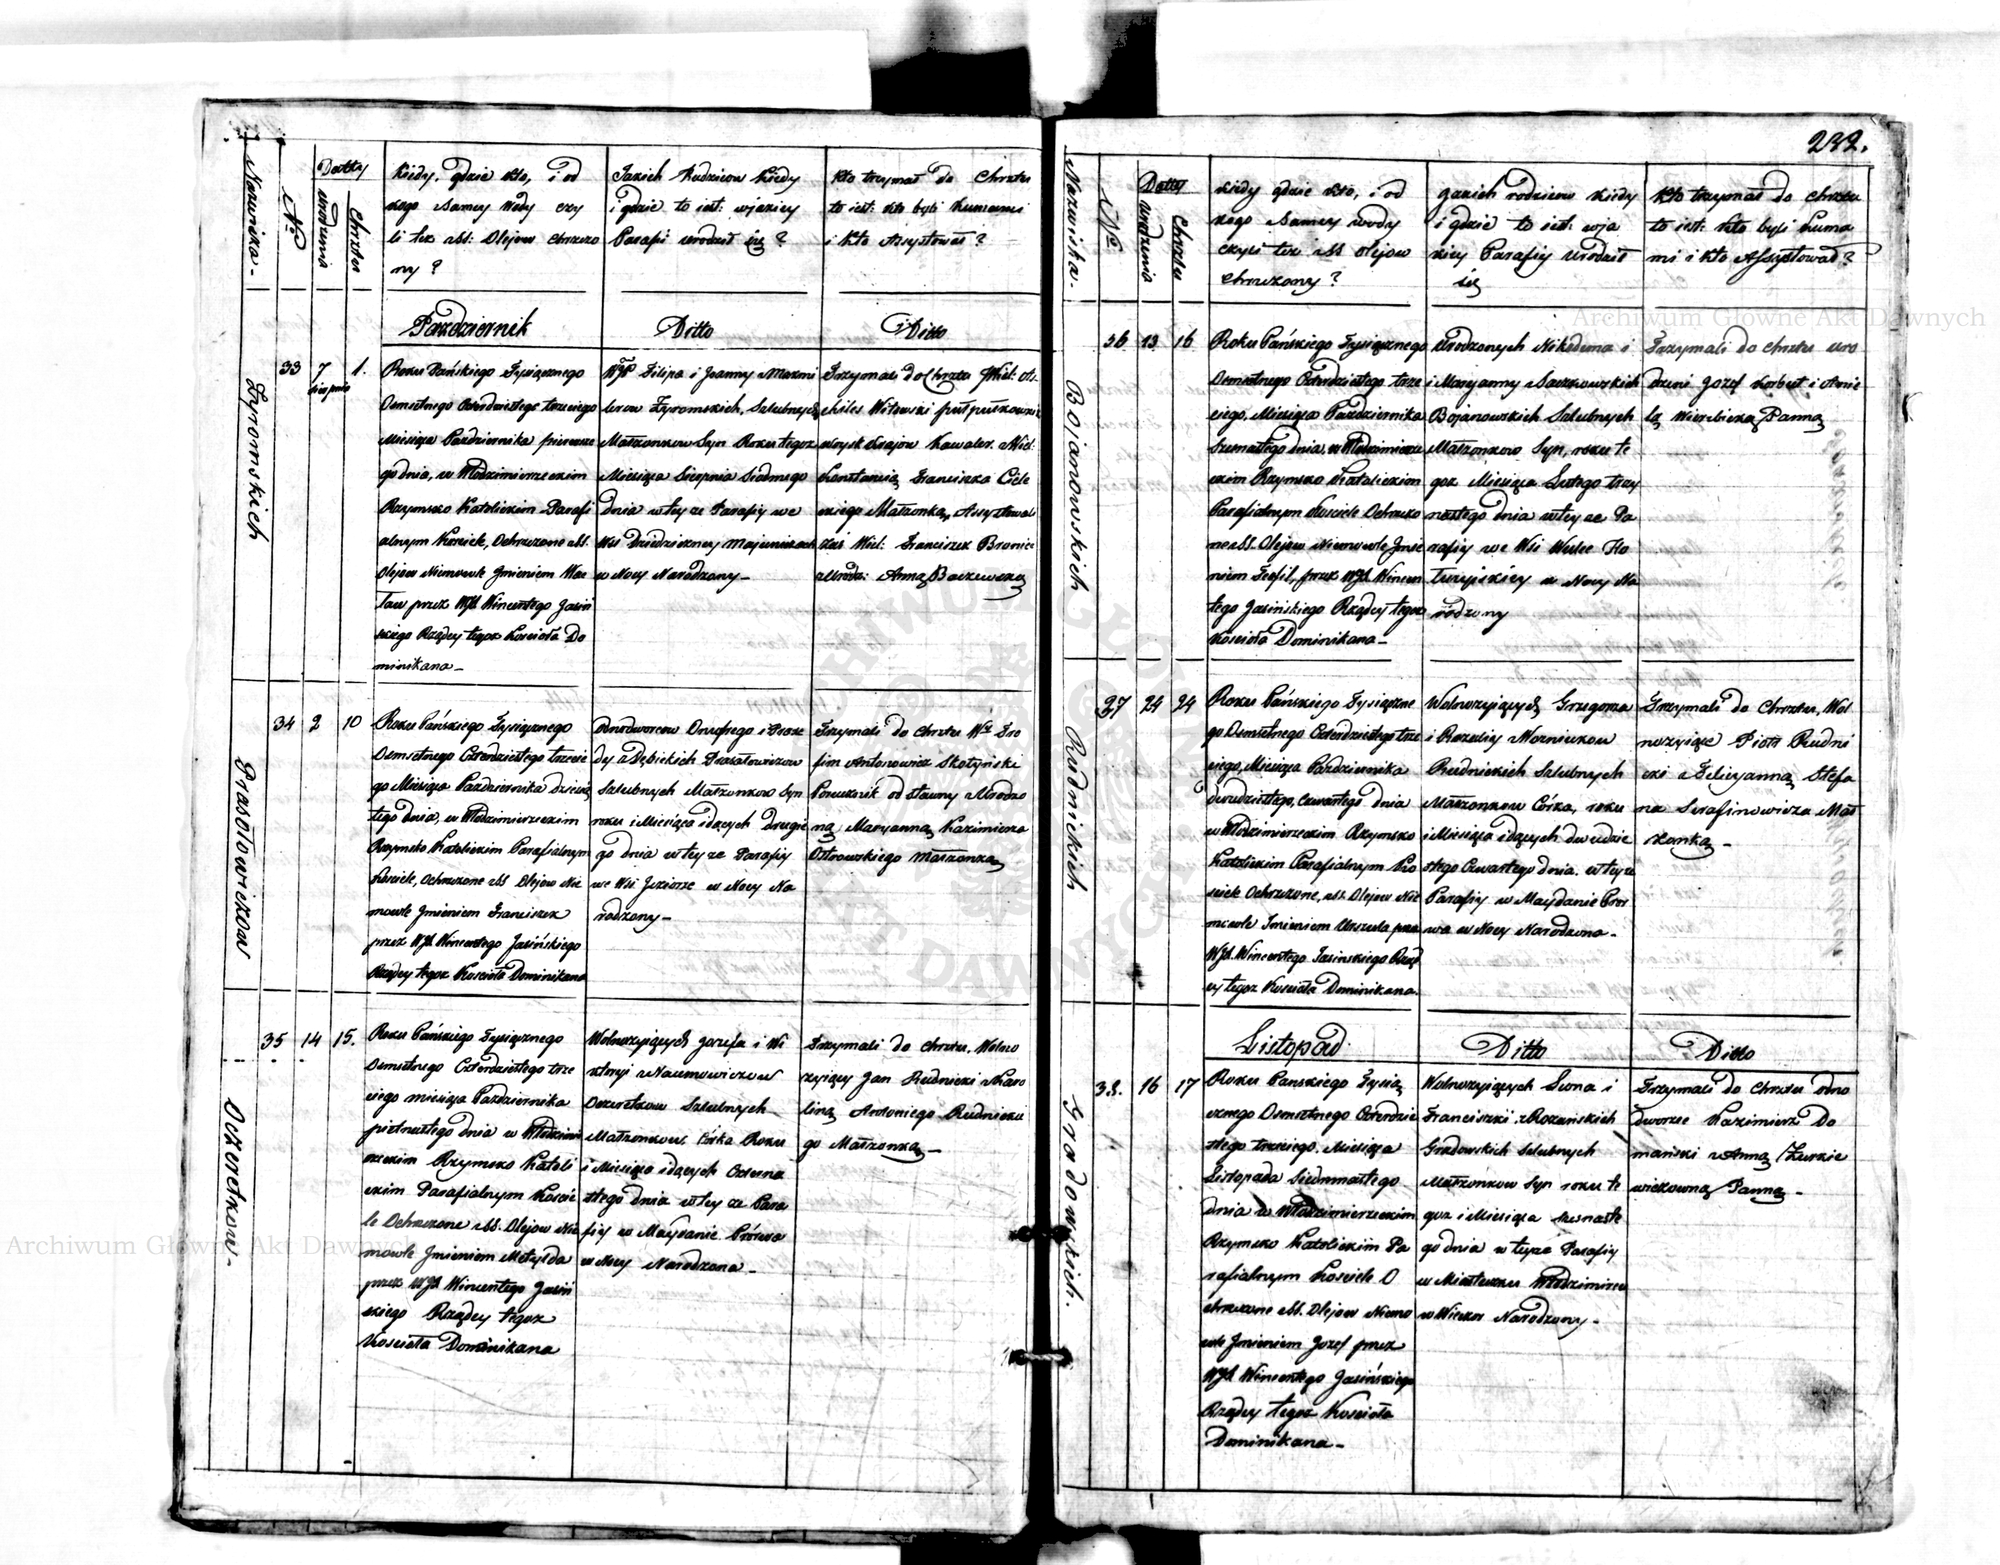 Nazwiska.
No
Datty
urodzenia
Chrztu
Kiedy, gdzie kto, i od
kogo Samey Wody czy
li też abs: Olejow chrzczo
ny?
Jakich Rodzicow Kiedy
i gdzie to iest: wjakiey
Parafii urodził się?
Kto trzymał do Chrztu
to iest: kto byli Kumami
i Kto Assystował?
Pazdziernik
Ditto
Ditto
Zyromskich
33
7
sierpnia
1.
Roku Pańskiego Tysiącznego
Osmsetnego Czterdziestego trzeciego
Miesiąca Pazdziernika pierwsze
go dnia, w Włodzimierzeckim
Rzymsko Katolickim Parafi
alnym Kosciele, Ochrzczono abs.
Olejow Niemowle Imieniem Wac
ław przez WJX Wincentego Jasiń
skiego Rządcy tegoż Kościoła Do
minikana
Filipa i Joanny
Zyromskich, Szlubnych
Małżonkow Syn Roku tegoż
Miesiąca Sierpnia Siodmego
dnia w tey że Parafiy we
Wsi Dziedziczney
w Nocy Narodzony
Trzymali do Chrztu
Witowski
Kawaler.
Konstancią Franciszka
Małżonką, Assystowa
li: Franciszek
Anną
Prasołowiczow
34
2
10
Roku Pańskiego Tysiącznego
Osmsetnego Czterdziestego trzecie
go Miesiąca Pazdziernika dziesią
tego dnia, w Włodzimierzeckim
Rzymsko Katolickim Parafialnym
Kosciele, Ochrzczono abs Olejow Nie
mowle Imieniem Franciszek
przez WJX Wincentego Jasińskiego
Rządcy tegoż Kościoła Dominikana
Odnodworcow Onufrego i
Prasołowiczow
Szlubnych Małżonkow Syn
roku i Miesiąca idących drugie
go dnia w tey że Parafiy
we Wsi Jeziorze w Nocy Na
rodzony
Trzymali do Chrztu
Antonowicz Skotyński
Porucznik od sławny Urodzo
ną Maryanną Kazimierza
Ostrowskiego Małżonką
Oczeretkow
35
14
15.
Roku Pańskiego Tysiącznego
Osmsetnego Czterdziestego trze
ciego miesiąca Pazdziernika
pietnastego dnia w Włodzimi
erzeckim Rzymsko Katoli
ckim Parafialnym Koscie
le Ochrzczono abs. Olejow Nie
mowle Imieniem Metylda
przez WJX Wincentego Jasiń
skiego Rządcy tegoż
Kościoła Dominikana
Wolnożyiących Jozefa i Wi
ktoryi z Naumowiczow
Oczeretkow Szlubnych
Małżonkow Córka Roku
i Miesiąca idących Czterna
stego dnia w tey że Para
fiiy w Maydanie
w Nocy Narodzona
Trzymali do Chrztu. Wolno
żyiący Jan Rudnicki z Karo
liną Antoniego Rudnickie
go Małżonką
232.
Nazwiska.
No
Datty
urodzenia
Chrztu
Kiedy gdzie kto, i od
kogo Samey wody
czyli też abs olejow
chrzczony?
Jakich rodzicow Kiedy
i gdzie to iest: w ja
kiey Parafiy urodził
się
Kto trzymał do Chrztu
to iest: Kto byli Kuma
mi i Kto Assystował?
Bojanowskich
36
13
16
Roku Pańskiego Tysiącznego
Osmsetnego Czterdziestego trze
ciego, Miesiąca Pazdziernika
Szesnastego dnia, w Włodzimierze
ckim Rzymsko Katolickim
Parafialnym Kosciele Ochrzczo
no abs. Olejow Niemowle Imie
niem Teofil, przez WJX Wincen
tego Jasińskiego Rządcy tegoż
Kościoła Dominikana
Urodzonych Nikodema i
i Maryanny z Saczkowskich
Bojanowskich Szlubnych
Małżonkow Syn, roku te
goż Miesiąca Lutego trzy
nastego dnia w tey że Pa
rafiy we Wsi Wulce Ho
w Nocy Na
rodzony
Trzymali do Chrztu uro
dzeni Jozef Korbut i Anie
lą Wierzbicką Panną
Rudnickich
37
24
24
Roku Pańskiego Tysiączne
go Osmsetnego Czterdziestego trze
ciego, Miesiąca Pazdziernika
dwudziestego, Czwartego dnia
w Włodzimierzeckim Rzymsko
Katolickim Parafialnym Ko
sciele Ochrzczono, abs. Olejow Nie
mowle Imieniem Urszula przez
WJX. Wincentego Jasinskiego Rząd
cy tegoż Kościoła Dominikana.
Wolnożyiących Grzegorza
i Rozalii Wozniukow
Rudnickich Szlubnych
Małżonkow Córka, roku
i Miesiąca idących dwudzie
stego Czwartego dnia. w tey że
Parafiy w Maydanie Pros
wa w Nocy Narodzona.
Trzymali do Chrztu, Wol
nożyiące Piotr Rudni
cki z Felicyanną Stefa
na Serafinowicza Mał
żonką
Listopad
Ditto
Ditto
Gradowskich.
38.
16
17
Roku Panskiego Tysią
cznego Osmsetnego Czterdzie
stego trzeciego. Miesiąca
Listopada siedmnastego
dnia w Włodzimierzeckim
Rzymsko Katolickim Pa
rafialnym Kosciele O
chrzczono abs. Olejow Niemo
wle Imieniem Jozef przez
WJX Wincentego Jasińskiego
Rządcy tegoż Kościoła
Dominikana
Wolnożyiących Leona i
Franciszki z Rozanskich
Gradowskich Szlubnych
Małżonkow Syn roku te
goż i Miesiąca szesnaste
go dnia w tey że Parafiy
w Miasteczku Włodzimircu
w Wieczor Narodzony
Trzymali do Chrztu Odno
dworzec Kazimierz Do
mański z Anną
Panną
Archiwum Główne Akt Dawnych
Archiwum Główne Akt Dawnych